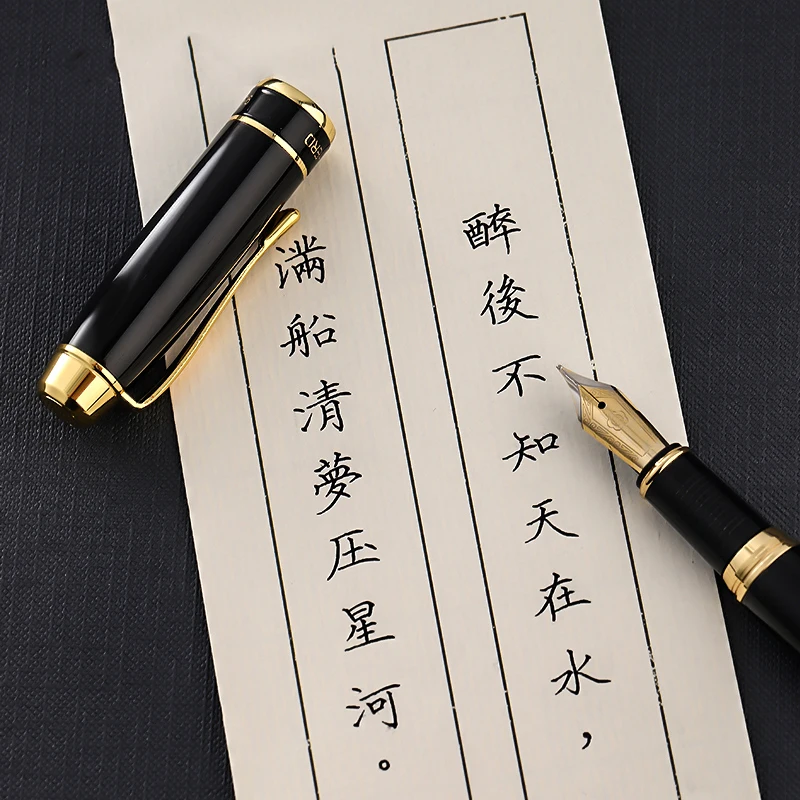 醉後不知天在水，
满船清夢压星河。